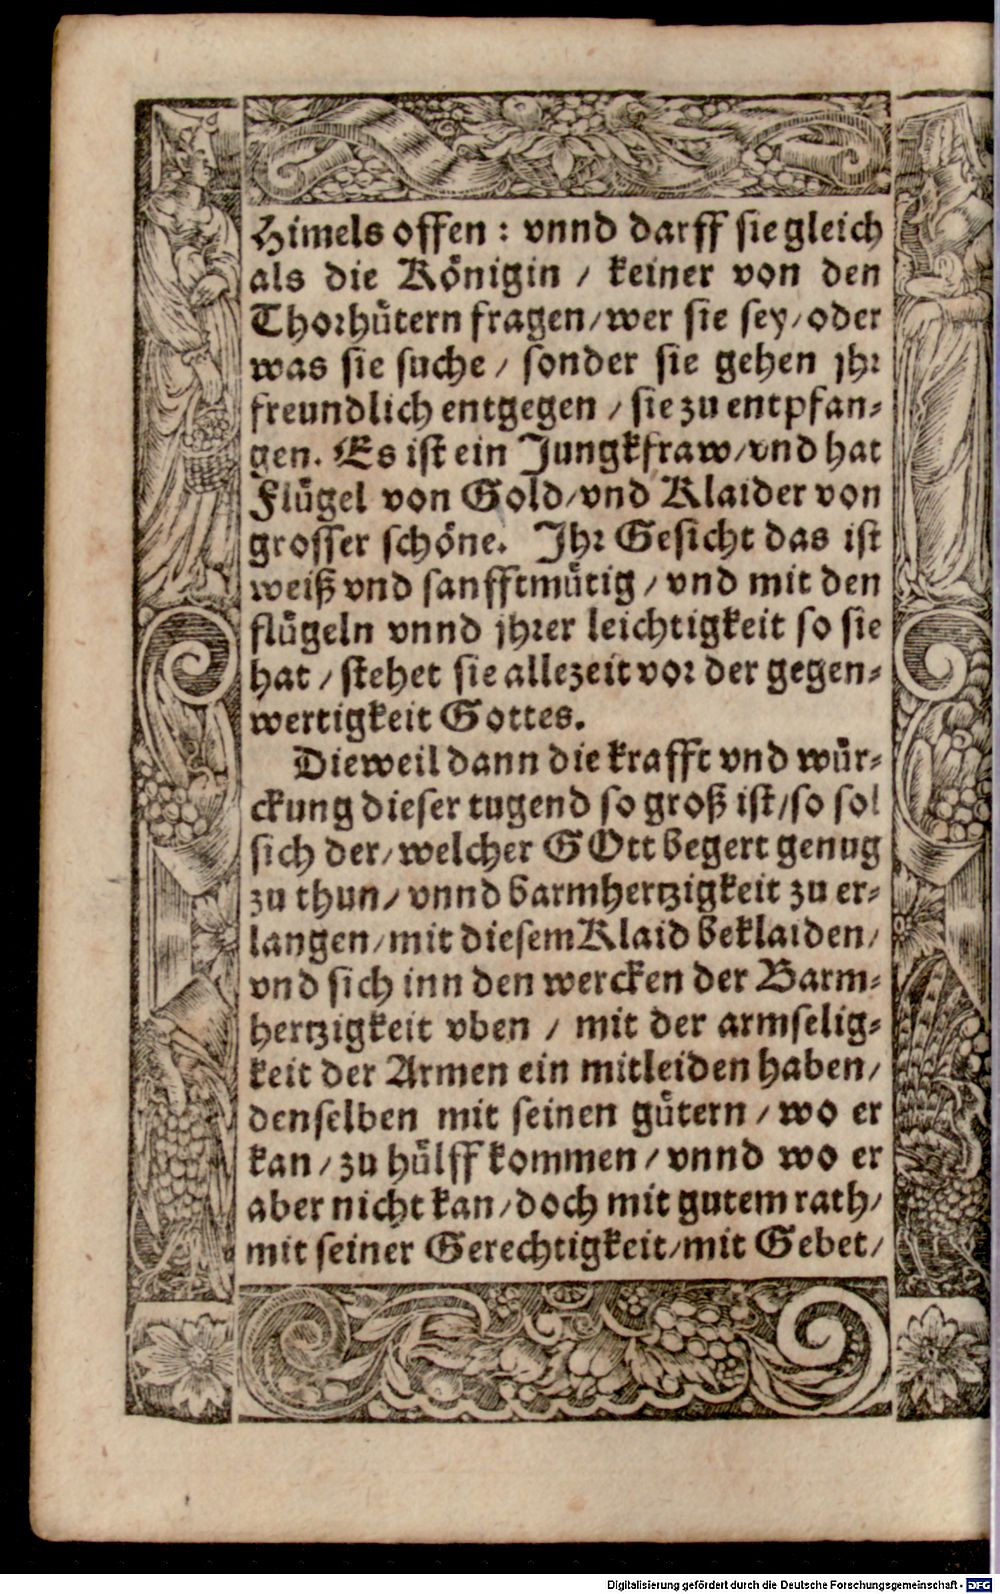 Himels offen : vnnd darff sie gleich
als die Königin / keiner von den
Thorhütern fragen/wer sie sey/oder
was sie suche / sonder sie gehen jhr
freundlich entgegen / sie zu entpfan-
gen. Es ist ein Jungkfraw/vnd hat
Flügel von Gold/vnd Klaider von
grosser schöne. Jhr Gesicht das ist
weiß vnd sanfftmütig / vnd mit den
flügeln vnnd jhrer leichtigkeit so sie
hat / stehet sie allezeit vor der gegen-
wertigkeit Gottes.
Dieweil dann die krafft vnd wür-
ckung dieser tugend so groß ist/so sol
sich der/welcher GOtt begert genug
zu thun/ vnnd barmhertzigkeit zu er-
langen/mit diesem Klaid beklaiden/
vnd sich inn den wercken der Barm-
hertzigkeit vben / mit der armselig-
keit der Armen ein mitleiden haben/
denselben mit seinen gütern / wo er
kan / zu hülff kommen / vnnd wo er
aber nicht kan/doch mit gutem rath/
mit seiner Gerechtigkeit/mit Gebet/
Digitalisierung gefördert durch die Deutsche Forschungsgemeinschaft - DFG